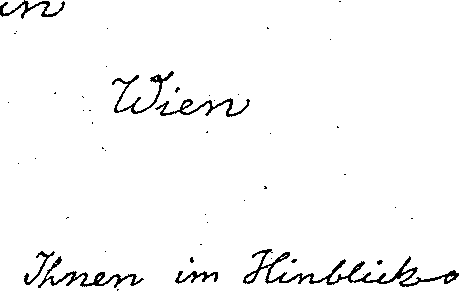 in
Wien
Ihnen im Hinblick